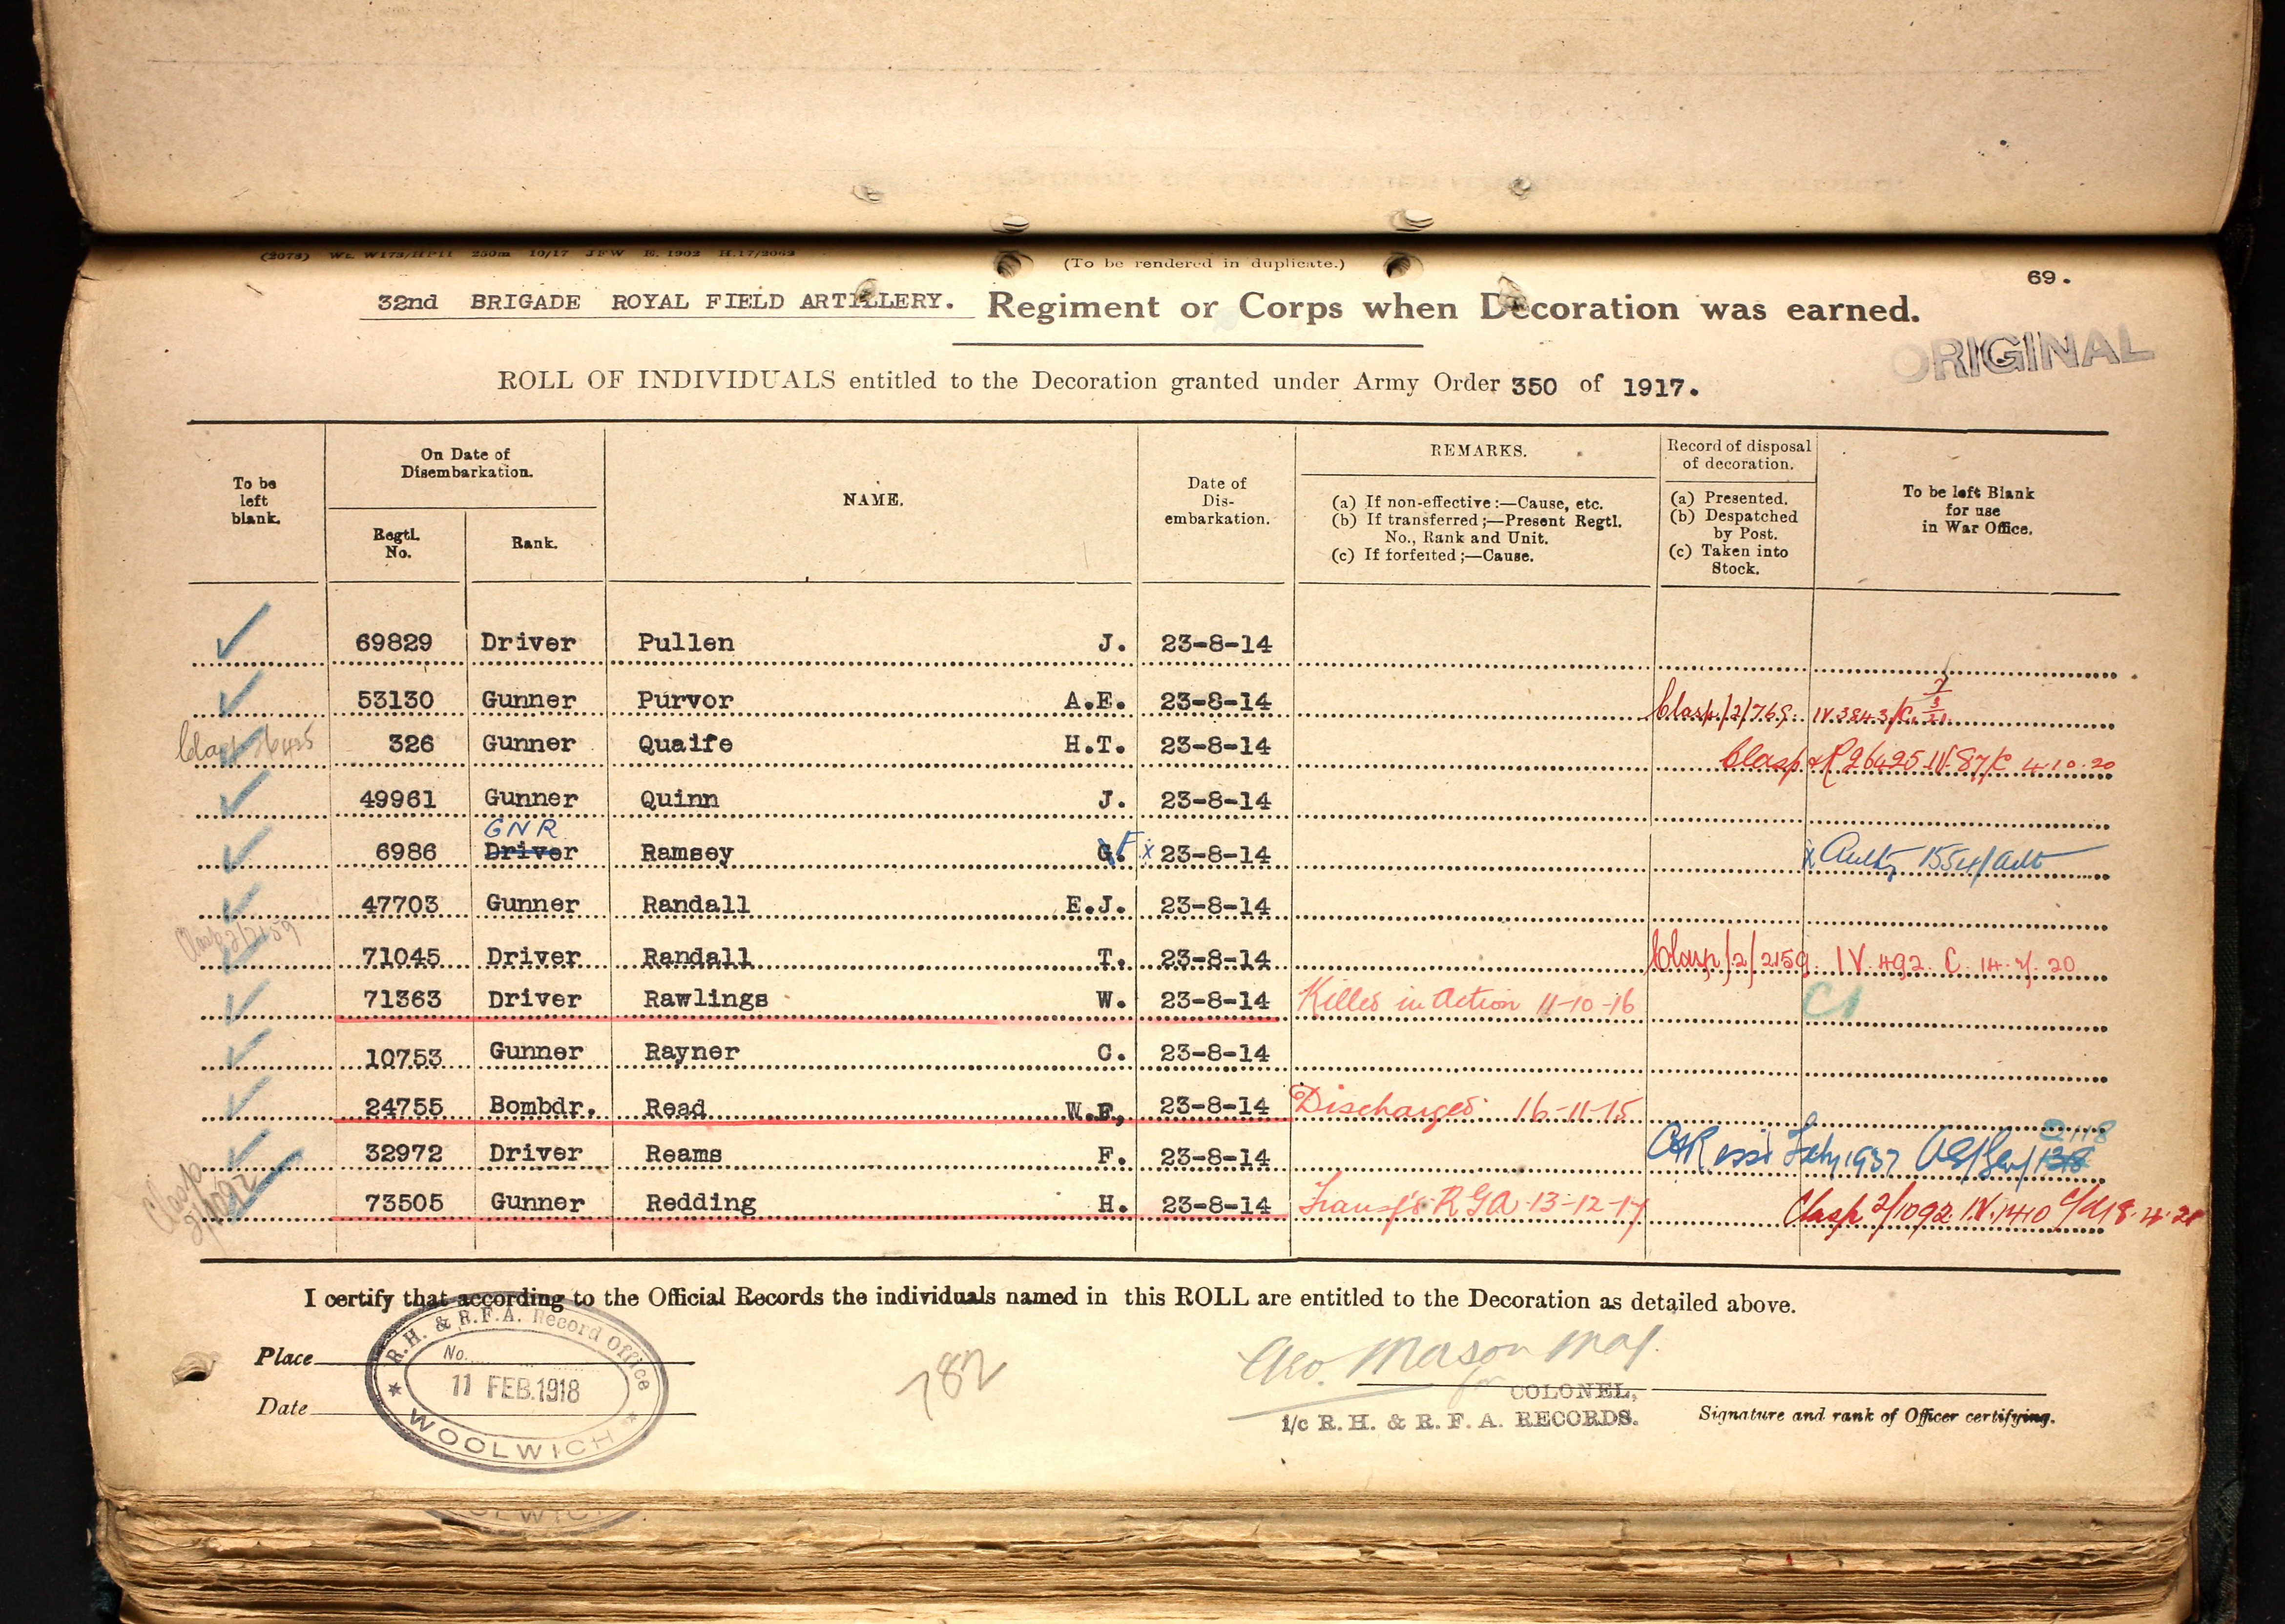 (2073) Wt. W173/HP11 250m 10/17 JFW E. 1902 H.17/2062
(To be rendered in duplicate.)
69.
32nd BRIGADE ROYAL FIELD ARTILLERY. Regiment or Corps when Decoration was earned.
ORIGINAL
ROLL OF INDIVIDUALS entitled to the Decoration granted under Army Order 350 of 1917.
To be left blank.
On Date of Disembarkation.
Regtl. No.
Rank.
NAME.
Date of Dis-embarkation.
REMARKS.
(a) If non-effective :—Cause, etc.
(b) If transferred ;—Present Regtl. No., Rank and Unit.
(c) If forfeited ;—Cause.
Record of disposal of decoration.
(a) Presented.
(b) Despatched by Post.
(c) Taken into Stock.
To be left Blank for use in War Office.
69829 Driver Pullen J. 23-8-14
53130 Gunner Purvor A.E. 23-8-14 Clasp/2/769. IV.3843/C.
Clasp 26425 326 Gunner Quaife H.T. 23-8-14 Clasp & R 26425 IV. 87/C 4.10.20
49961 Gunner Quinn J. 23-8-14
GNR
6986 Driver Ramsey G. F x 23-8-14 x Auth 1554/Adt
47703 Gunner Randall E.J. 23-8-14
Clasp 2/2159
71045 Driver Randall T. 23-8-14 Clasp/2/2159. IV. 492. C. 14. 20
71363 Driver Rawlings W. 23-8-14 Killed in Action 11-10-16
10753 Gunner Rayner C. 23-8-14
24755 Bombdr. Read W.F, 23-8-14 Discharged 16-11-15
2118
32972 Driver Reams F. 23-8-14 1937
Clasp 2/1092
73505 Gunner Redding H. 23-8-14 Transf'd R G A 13-12-17 Clasp 2/1092 IV.1410
I certify that according to the Official Records the individuals named in this ROLL are entitled to the Decoration as detailed above.
Place
Date
R.H. & R.F.A. Record Office
No.
11 FEB.1918
WOOLWICH
782
Geo. Mason Maj.
for COLONEL,
i/c R. H. & R. F. A. RECORDS.
Signature and rank of Officer certifying.